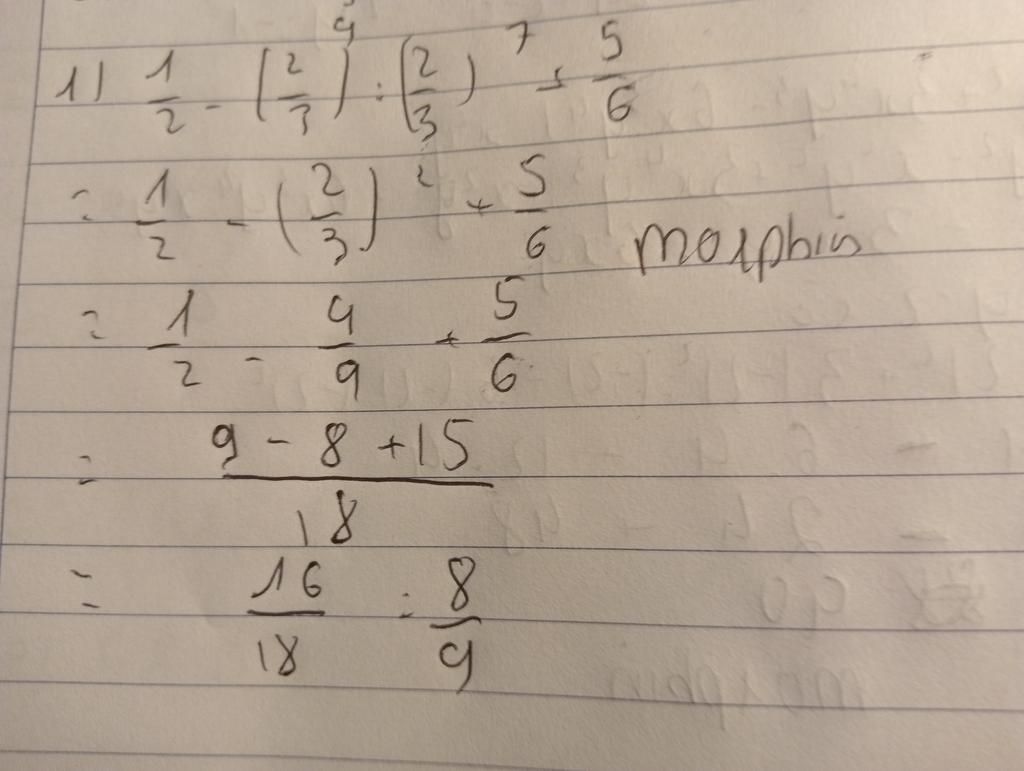 1) 1/2 - (2/3)^9 : (2/3)^7 + 5/6
= 1/2 - (2/3)^2 + 5/6 morphin
= 1/2 - 4/9 + 5/6
= (9 - 8 + 15)/18
= 16/18 = 8/9